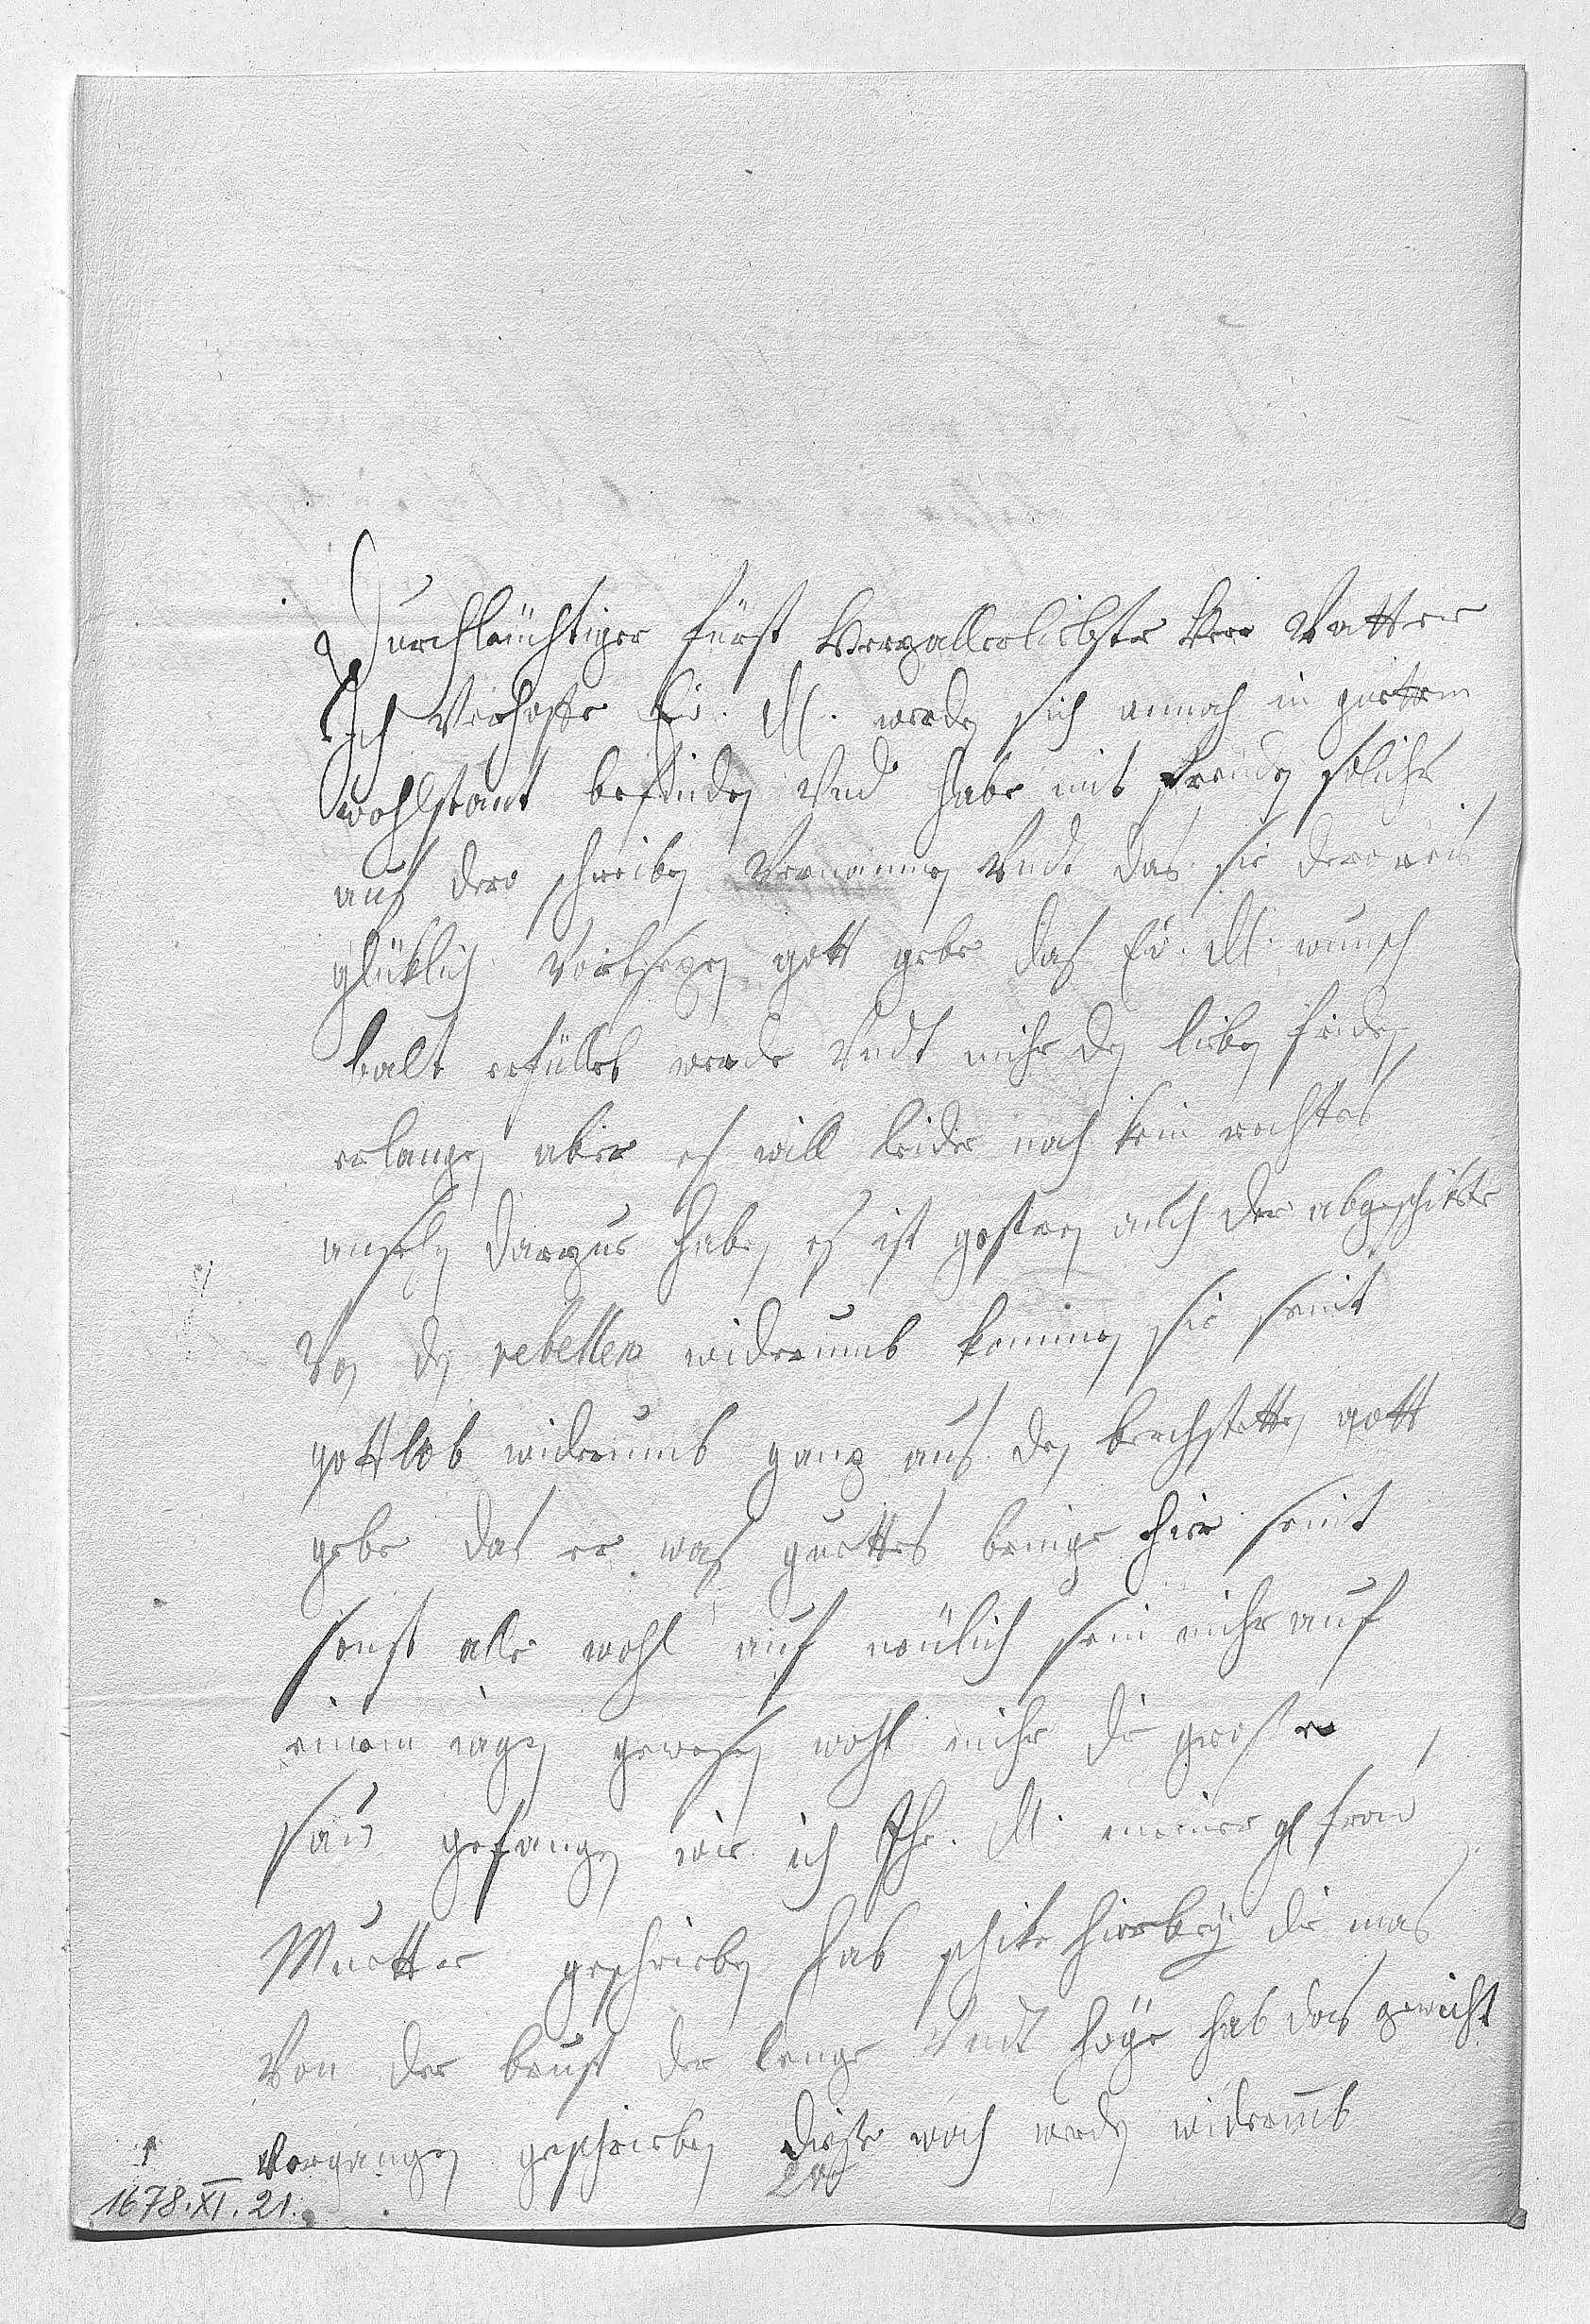 Durchleüchtiger Fürst Herzallerliebster Herr Vatter
Ich Verhoffe Eü. M. werden sich annoch in guettem
wohlstant befinden Und habe mit freüden solches
auß dero schreiben Vernommen Undt das sie dero reiß
glüklich Vortsezen gott gebe das Eü. M. wunsch
balt erfüllet werde Undt mihr den lieben friden
erlangen aber es will leider noch kein rechtes
ansehn darzue haben es ist gestern auch der abgeschikte
Von den rebellen widerumb kommen sie seint
gottlob widerumb ganz aus den berchstetten gott
gebe das er was guettes bringe hier seint
sonst alle wohl auf neülich sein mihr auf
einem iagen gewesen wohl mihr die grosse
saü gefangen wie ich Ihr. M. meiner gl frau
Muetter geschrieben hab schike hierbey die mas
Von der brust der lenge Undt höge hab das gewicht
Vergangen geschrieben diesse woch werden widerumb
1678.XI.21.